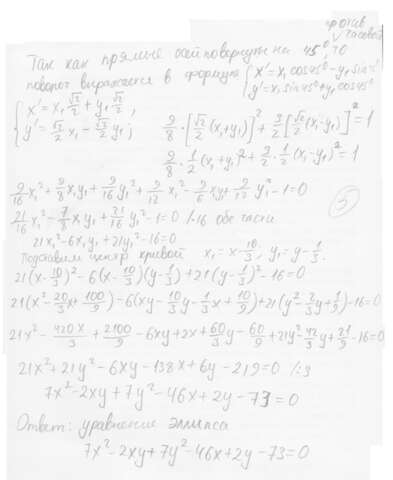 против
часовой
Так как прямые осей повернуты на 45°, то
поворот выражается в формуле { x' = x₁cos45° - y₁sin45°
y' = x₁sin45° + y₁cos45°
{ x' = x₁ √2/2 + y₁ √2/2 ,
y' = √2/2 x₁ - √2/2 y₁ ;
9/8 · [√2/2 (x₁+y₁)]² + 3/2 [√2/2 (x₁-y₁)]² = 1
9/8 · 1/2 (x₁+y₁)² + 3/2 · 1/2 (x₁-y₁)² = 1
9/16 x₁² + 9/8 x₁y₁ + 9/16 y₁² + 9/12 x₁² - 9/6 xy + 9/12 y₁² - 1 = 0
21/16 x₁² - 3/8 x₁y₁ + 21/16 y₁² - 1 = 0 /·16 обе части
21x₁² - 6x₁y₁ + 21y² - 16 = 0
5
Подставим центр кривой x₁ = x - 10/3, y₁ = y - 1/3.
21(x - 10/3)² - 6(x - 10/3)(y - 1/3) + 21(y - 1/3)² - 16 = 0
21(x² - 20/3 x + 100/9) - 6(xy - 10/3 y - 1/3 x + 10/9) + 21(y² - 2/3 y + 1/9) - 16 = 0
21x² - 420x/3 + 2100/9 - 6xy + 2x + 60/3 y - 60/9 + 21y² - 42/3 y + 21/9 - 16 = 0
21x² + 21y² - 6xy - 138x + 6y - 219 = 0 /:3
7x² - 2xy + 7y² - 46x + 2y - 73 = 0
Ответ: уравнение эллипса
7x² - 2xy + 7y² - 46x + 2y - 73 = 0